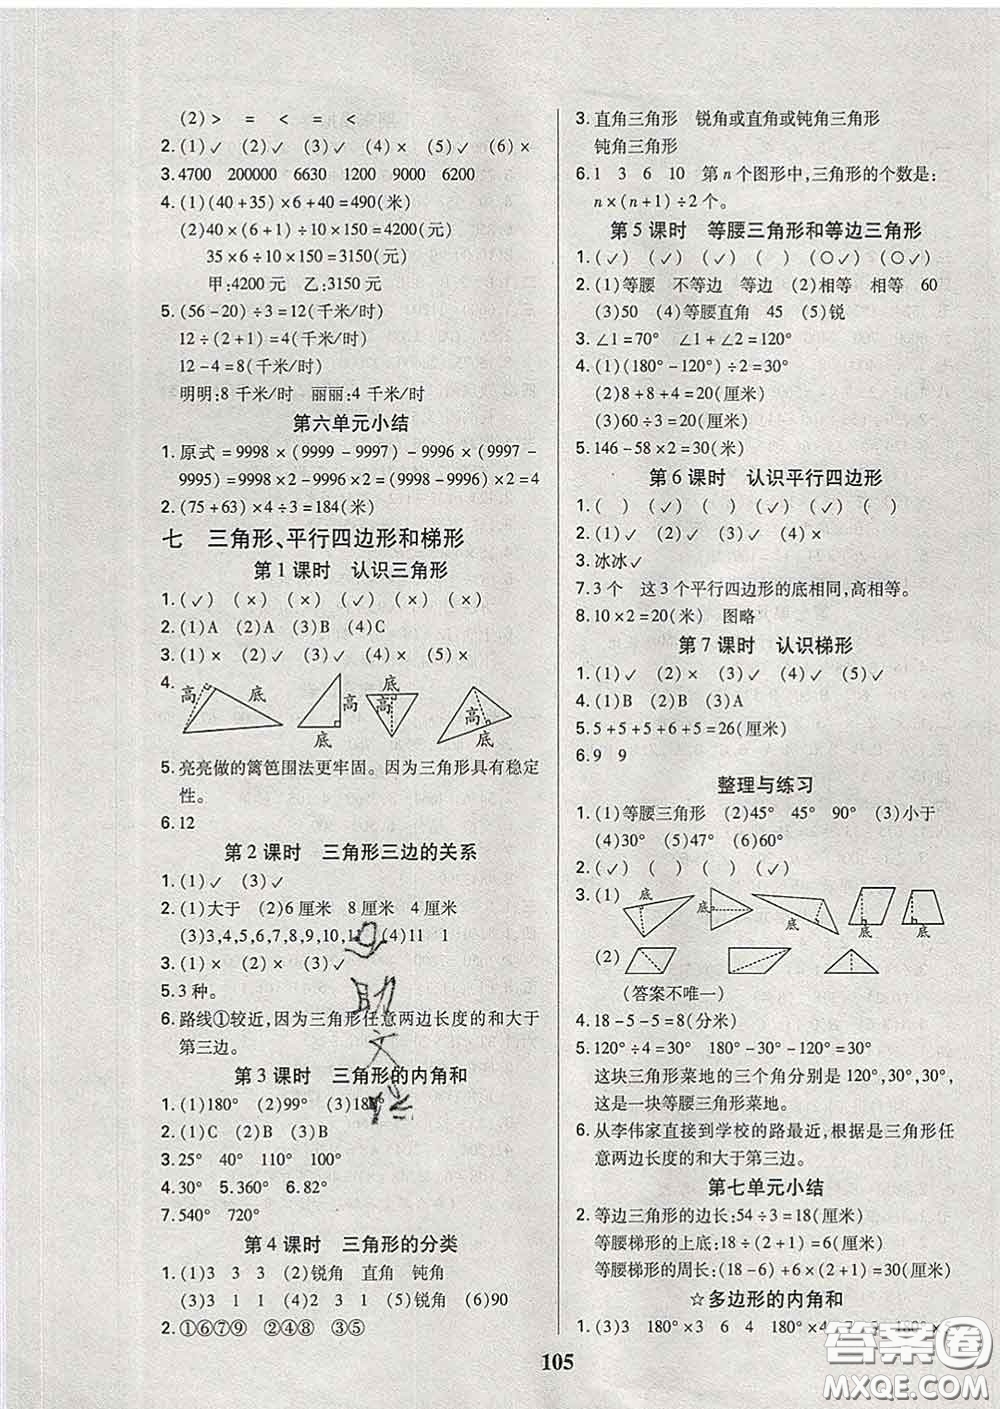 (2)> = < = <
2.(1)✓ (2)✓ (3)✓ (4)× (5)✓ (6)×
3.4700 200000 6630 1200 9000 6200
4.(1)(40+35)×6+40=490(米)
(2)40×(6+1)÷10×150=4200(元)
35×6÷10×150=3150(元)
甲:4200元 乙:3150元
5.(56-20)÷3=12(千米/时)
12÷(2+1)=4(千米/时)
12-4=8(千米/时)
明明:8千米/时 丽丽:4千米/时
第六单元小结
1.原式=9998×(9999-9997)-9996×(9997-
9995)=9998×2-9996×2=(9998-9996)×2=4
2.(75+63)×4÷3=184(米)
七 三角形、平行四边形和梯形
第1课时 认识三角形
1.(✓) (×) (×) (✓) (×) (×)
2.(1)A (2)A (3)B (4)C
3.(1)× (2)✓ (3)✓ (4)× (5)×
4. 高 底 高 底 高 底 高 底
5.亮亮做的篱笆围法更牢固。因为三角形具有稳定
性。
6.12
第2课时 三角形三边的关系
1.(1)✓ (3)✓
2.(1)大于 (2)6厘米 8厘米 4厘米
(3)3,4,5,6,7,8,9,10,11 (4)11 1
3.(1)× (2)× (3)✓
5.3种。
6.路线①较近,因为三角形任意两边长度的和大于
第三边。
第3课时 三角形的内角和
1.(1)180° (2)99° (3)180°
2.(1)C (2)B (3)B
3.25° 40° 110° 100° 40°
4.30° 5.360° 6.82°
7.540° 720°
第4课时 三角形的分类
1.(1)3 3 3 (2)锐角 直角 钝角
(3)3 1 1 (4)2 3 1 (5)锐角 (6)90
2.①⑥⑦⑨ ②④⑧ ③⑤
3.直角三角形 锐角或直角或钝角三角形
钝角三角形
6.1 3 6 10 第n个图形中,三角形的个数是:
n×(n+1)÷2个。
第5课时 等腰三角形和等边三角形
1.(✓) (✓) (✓) ( ) (○✓) (○✓)
2.(1)等腰 不等边 等边 (2)相等 相等 60
(3)50 (4)等腰直角 45 (5)锐
3.∠1=70° ∠1+∠2=120°
4.(1)(180°-120°)÷2=30°
(2)8+8+4=20(厘米)
(3)60÷3=20(厘米)
5.146-58×2=30(米)
第6课时 认识平行四边形
1.( ) (✓) ( ) (✓) (✓) ( )
2.(1)✓ (2)✓ (3)✓ (4)×
3.冰冰✓
7.3个 这3个平行四边形的底相同,高相等。
8.10×2=20(米) 图略
第7课时 认识梯形
1.( ) (✓) ( ) (✓) ( ) (✓)
3.(1)✓ (2)× (3)✓ (4)✓ (5)×
4.(1)B (2)B (3)A
5.5+5+5+6+5=26(厘米)
6.9 9
整理与练习
1.(1)等腰三角形 (2)45° 45° 90° (3)小于
(4)30° (5)47° (6)60°
2.(✓) ( ) ( ) (✓)
3.(1) 底 底 底 底 底
(2)
(答案不唯一)
4.18-5-5=8(分米)
5.120°÷4=30° 180°-120°-30°=30°
这块三角形菜地的三个角分别是120°,30°,30°,
这是一块等腰三角形菜地。
6.从李伟家直接到学校的路最近,根据是三角形任
意两边长度的和大于第三边。
第七单元小结
2.等边三角形的边长:54÷3=18(厘米)
等腰梯形的上底:18÷(2+1)=6(厘米)
等腰梯形的周长:(18-6)+6×(2+1)=30(厘米)
☆多边形的内角和
1.(3)3 180°×3 6 4 180°×4 7 5 180°×5
105
答案圈
MXQE.COM